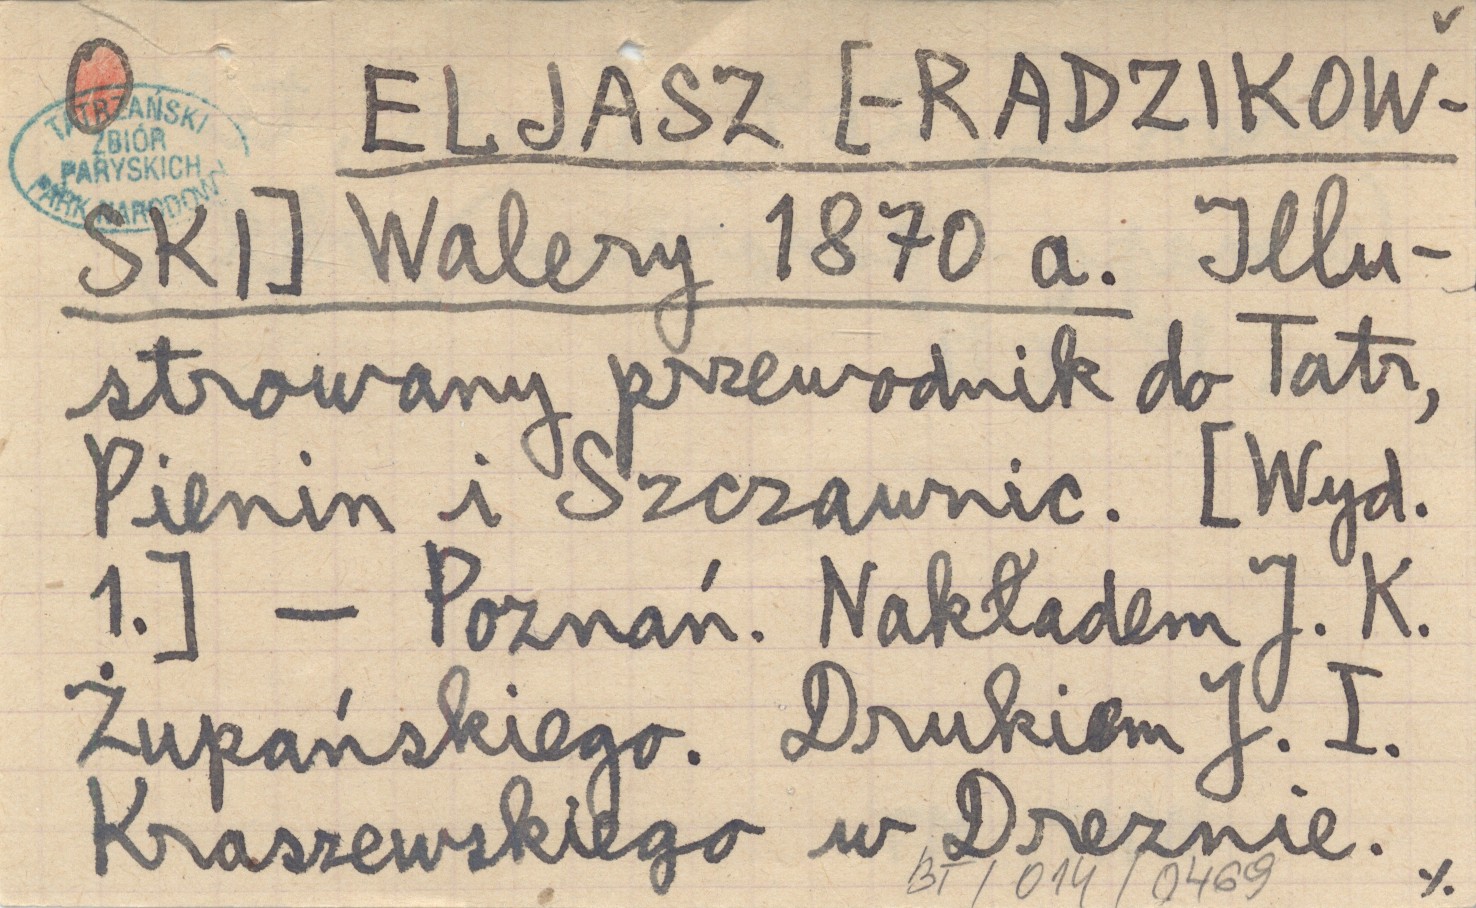 ELJASZ [-RADZIKOW-
SKI] Walery 1870 a. Illu-
strowany przewodnik do Tatr,
Pienin i Szczawnic. [Wyd.
1.] — Poznań. Nakładem J. K.
Żupańskiego. Drukiem J. I.
Kraszewskiego w Dreznie.
BT / 014 / 0469
TATRZAŃSKI
ZBIÓR
PARYSKICH
PARK NARODOWY